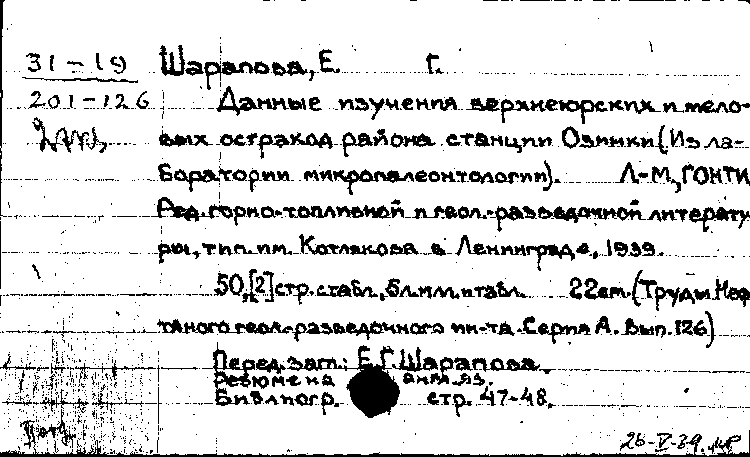 31-19
201-126
Шарапова, Е. Г.
Данные изучения верхнеюрских и мело-
вых остракод района станции Озинки (Из ла-
боратории микропалеонтологии). Л.-М., ГОНТИ
Ред. горно-топливной и геол.-разведочной литерату
ры, тип. им. Котлякова в Ленинграде, 1939.
50, [2] стр. с табл., 6 л. илл. и табл. 22 см. (Труды Неф
тяного геол.-разведочного ин-та. Серия А. Вып. 126)
Перед. загл.: Е. Г. Шарапова.
Резюме на англ. яз.
Библиогр. стр. 47-48.
26-V-39.